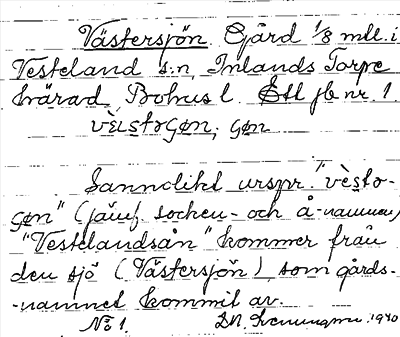 Västersjön Gård 1/8 mtl. i
Vesteland s:n, Inlands Torpe
härad, Bohus l. Ett jb nr. 1.
sjön
Sannolikt urspr. "
" (jämf. socken- och å-namnen)
"Vestelandsån" kommer från
den sjö (Västersjön), som gårds-
-namnet kommit av.
No 1. 1940